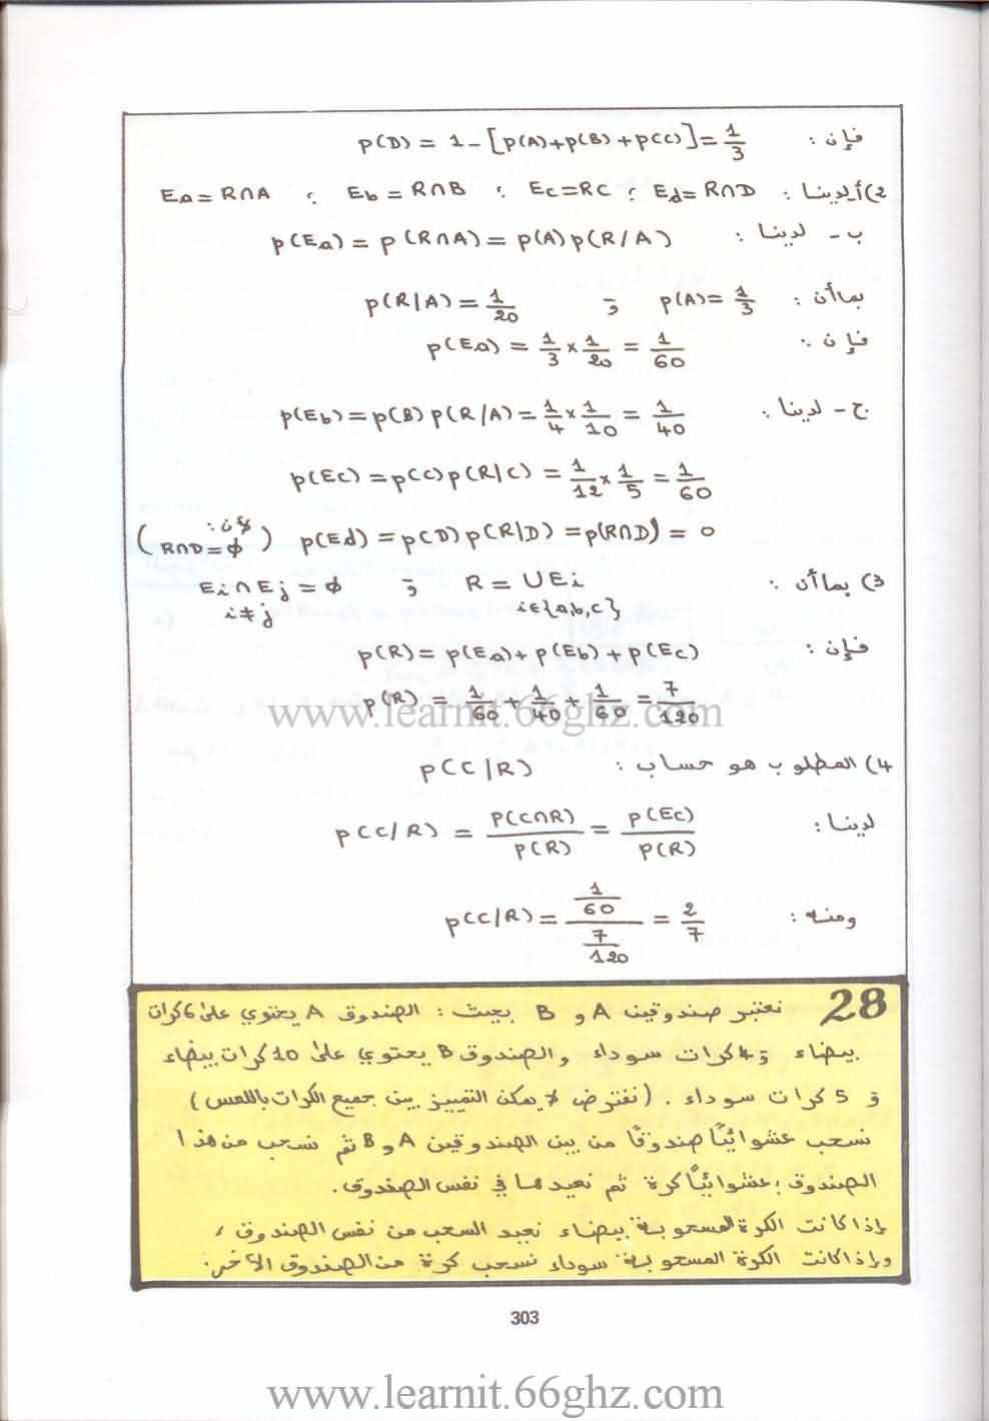 فإن : p(D) = 1 - [p(A)+p(B)+p(C)] = 1/3
2) أ- لدينا : Ea = R∩A ; Eb = R∩B ; Ec = RC ; Ed = R∩D
ب - لدينا : p(Ea) = p(R∩A) = p(A)p(R/A)
بما أن : p(A) = 1/3 و p(R|A) = 1/20
فإن : p(Ea) = 1/3 × 1/20 = 1/60
ج - لدينا : p(Eb) = p(B)p(R/A) = 1/4 × 1/10 = 1/40
p(Ec) = p(C)p(R|C) = 1/12 × 1/5 = 1/60
p(Ed) = p(D)p(R|D) = p(R∩D) = 0 (لأن : R∩D = ϕ)
3) بما أن : R = ∪Ei i∈{a,b,c} و Ei∩Ej = ϕ i≠j
فإن : p(R) = p(Ea) + p(Eb) + p(Ec)
p(R) = 1/60 + 1/40 + 1/60 = 7/120
www.learnit.66ghz.com
4) المطلوب هو حساب : p(C|R)
لدينا : p(C/R) = p(C∩R)/p(R) = p(Ec)/p(R)
ومنه : p(C/R) = (1/60)/(7/120) = 2/7
28 نعتبر صندوقين A و B بحيث : الصندوق A يحتوي على 6 كرات
بيضاء و 4 كرات سوداء والصندوق B يحتوي على 10 كرات بيضاء
و 5 كرات سوداء . (نفترض لا يمكن التمييز بين جميع الكرات باللمس)
نسحب عشوائيًا صندوقًا من بين الصندوقين A و B ثم نسحب من هذا
الصندوق عشوائيًا كرة ثم نعيدها في نفس الصندوق.
إذا كانت الكرة المسحوبة بيضاء نعيد السحب من نفس الصندوق ،
وإذا كانت الكرة المسحوبة سوداء نسحب كرة من الصندوق الآخر.
303
www.learnit.66ghz.com